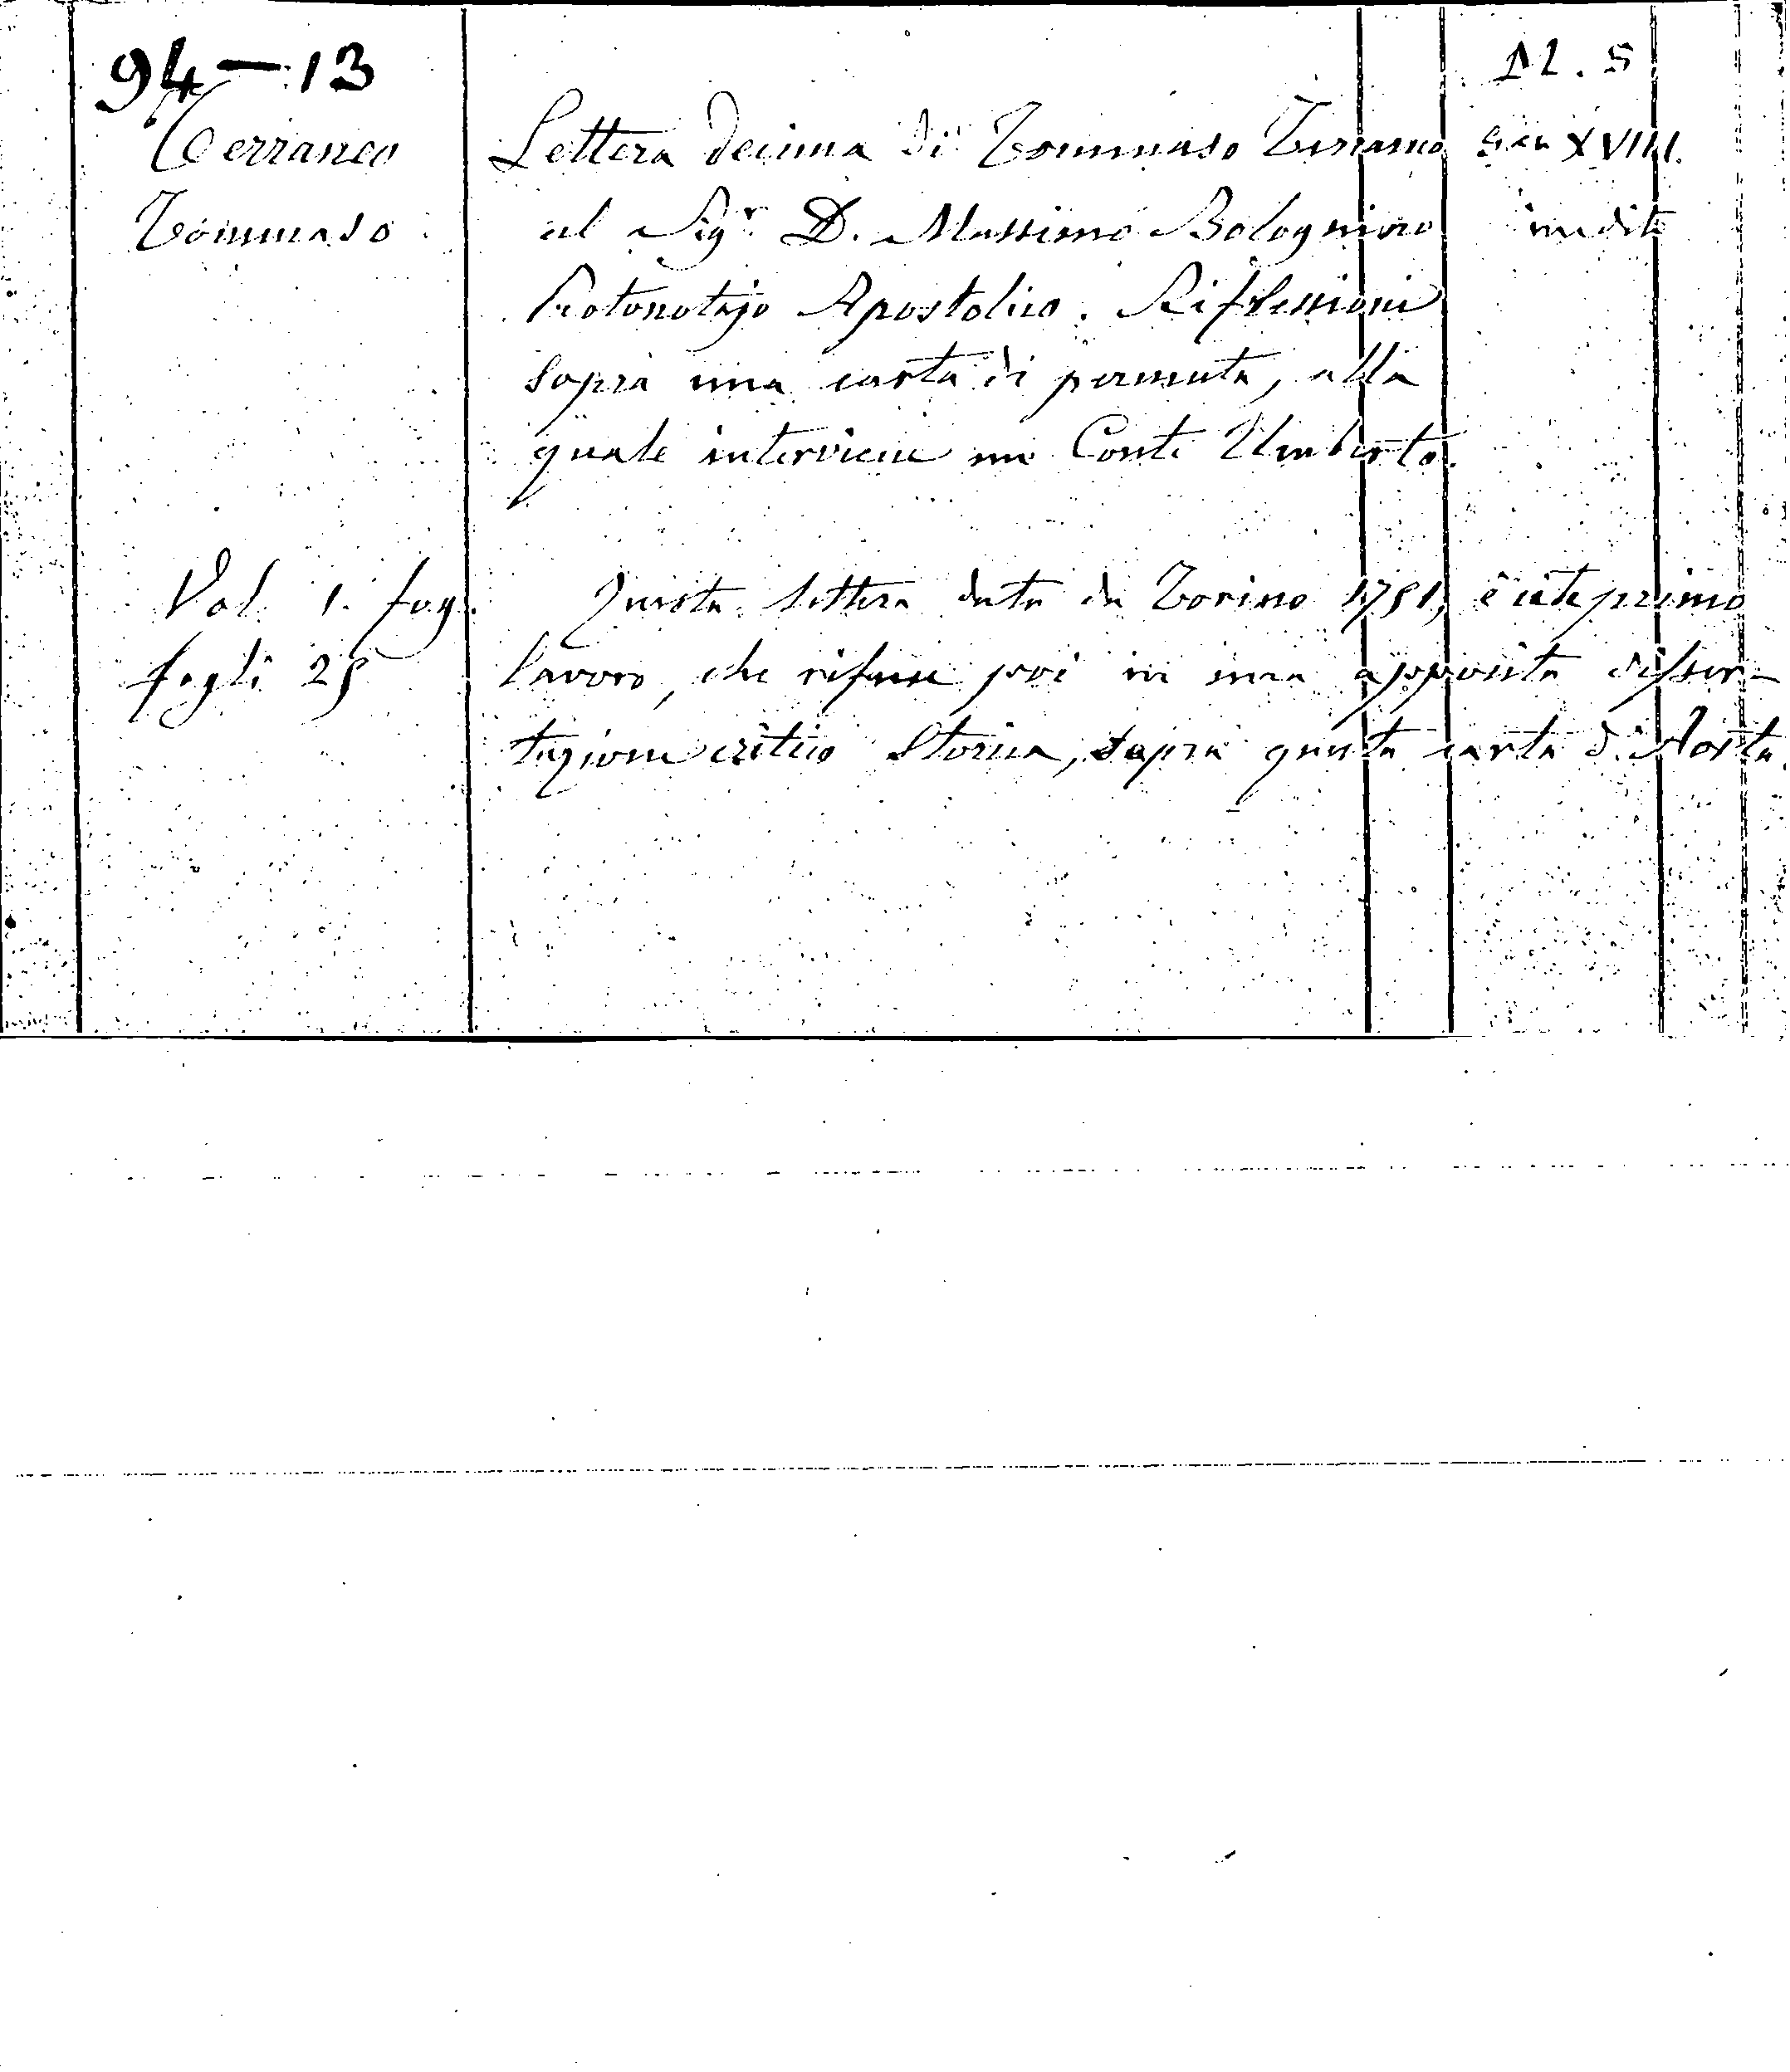 94 — 13
12. 5
Terraneo
Tommaso
Lettera decima di Tommaso Terraneo
al Sigr. D. Massimo Bolognino
Protonotajo Apostolico. Riflessioni
sopra una carta di permuta, alla
quale interviene un Conte Umberto.
XVIII.
inedita
Vol. 1. fog.
fogli 25
Questa lettera data da Torino 1751, è primo
lavoro, che rifuse poi in una apposita disser-
tazione critico storica, sopra questa carta d'Aosta.